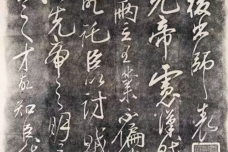 後出師表
先帝慮漢賊
兩立王業不偏
故託臣以討賊
先帝之明
之才故知臣